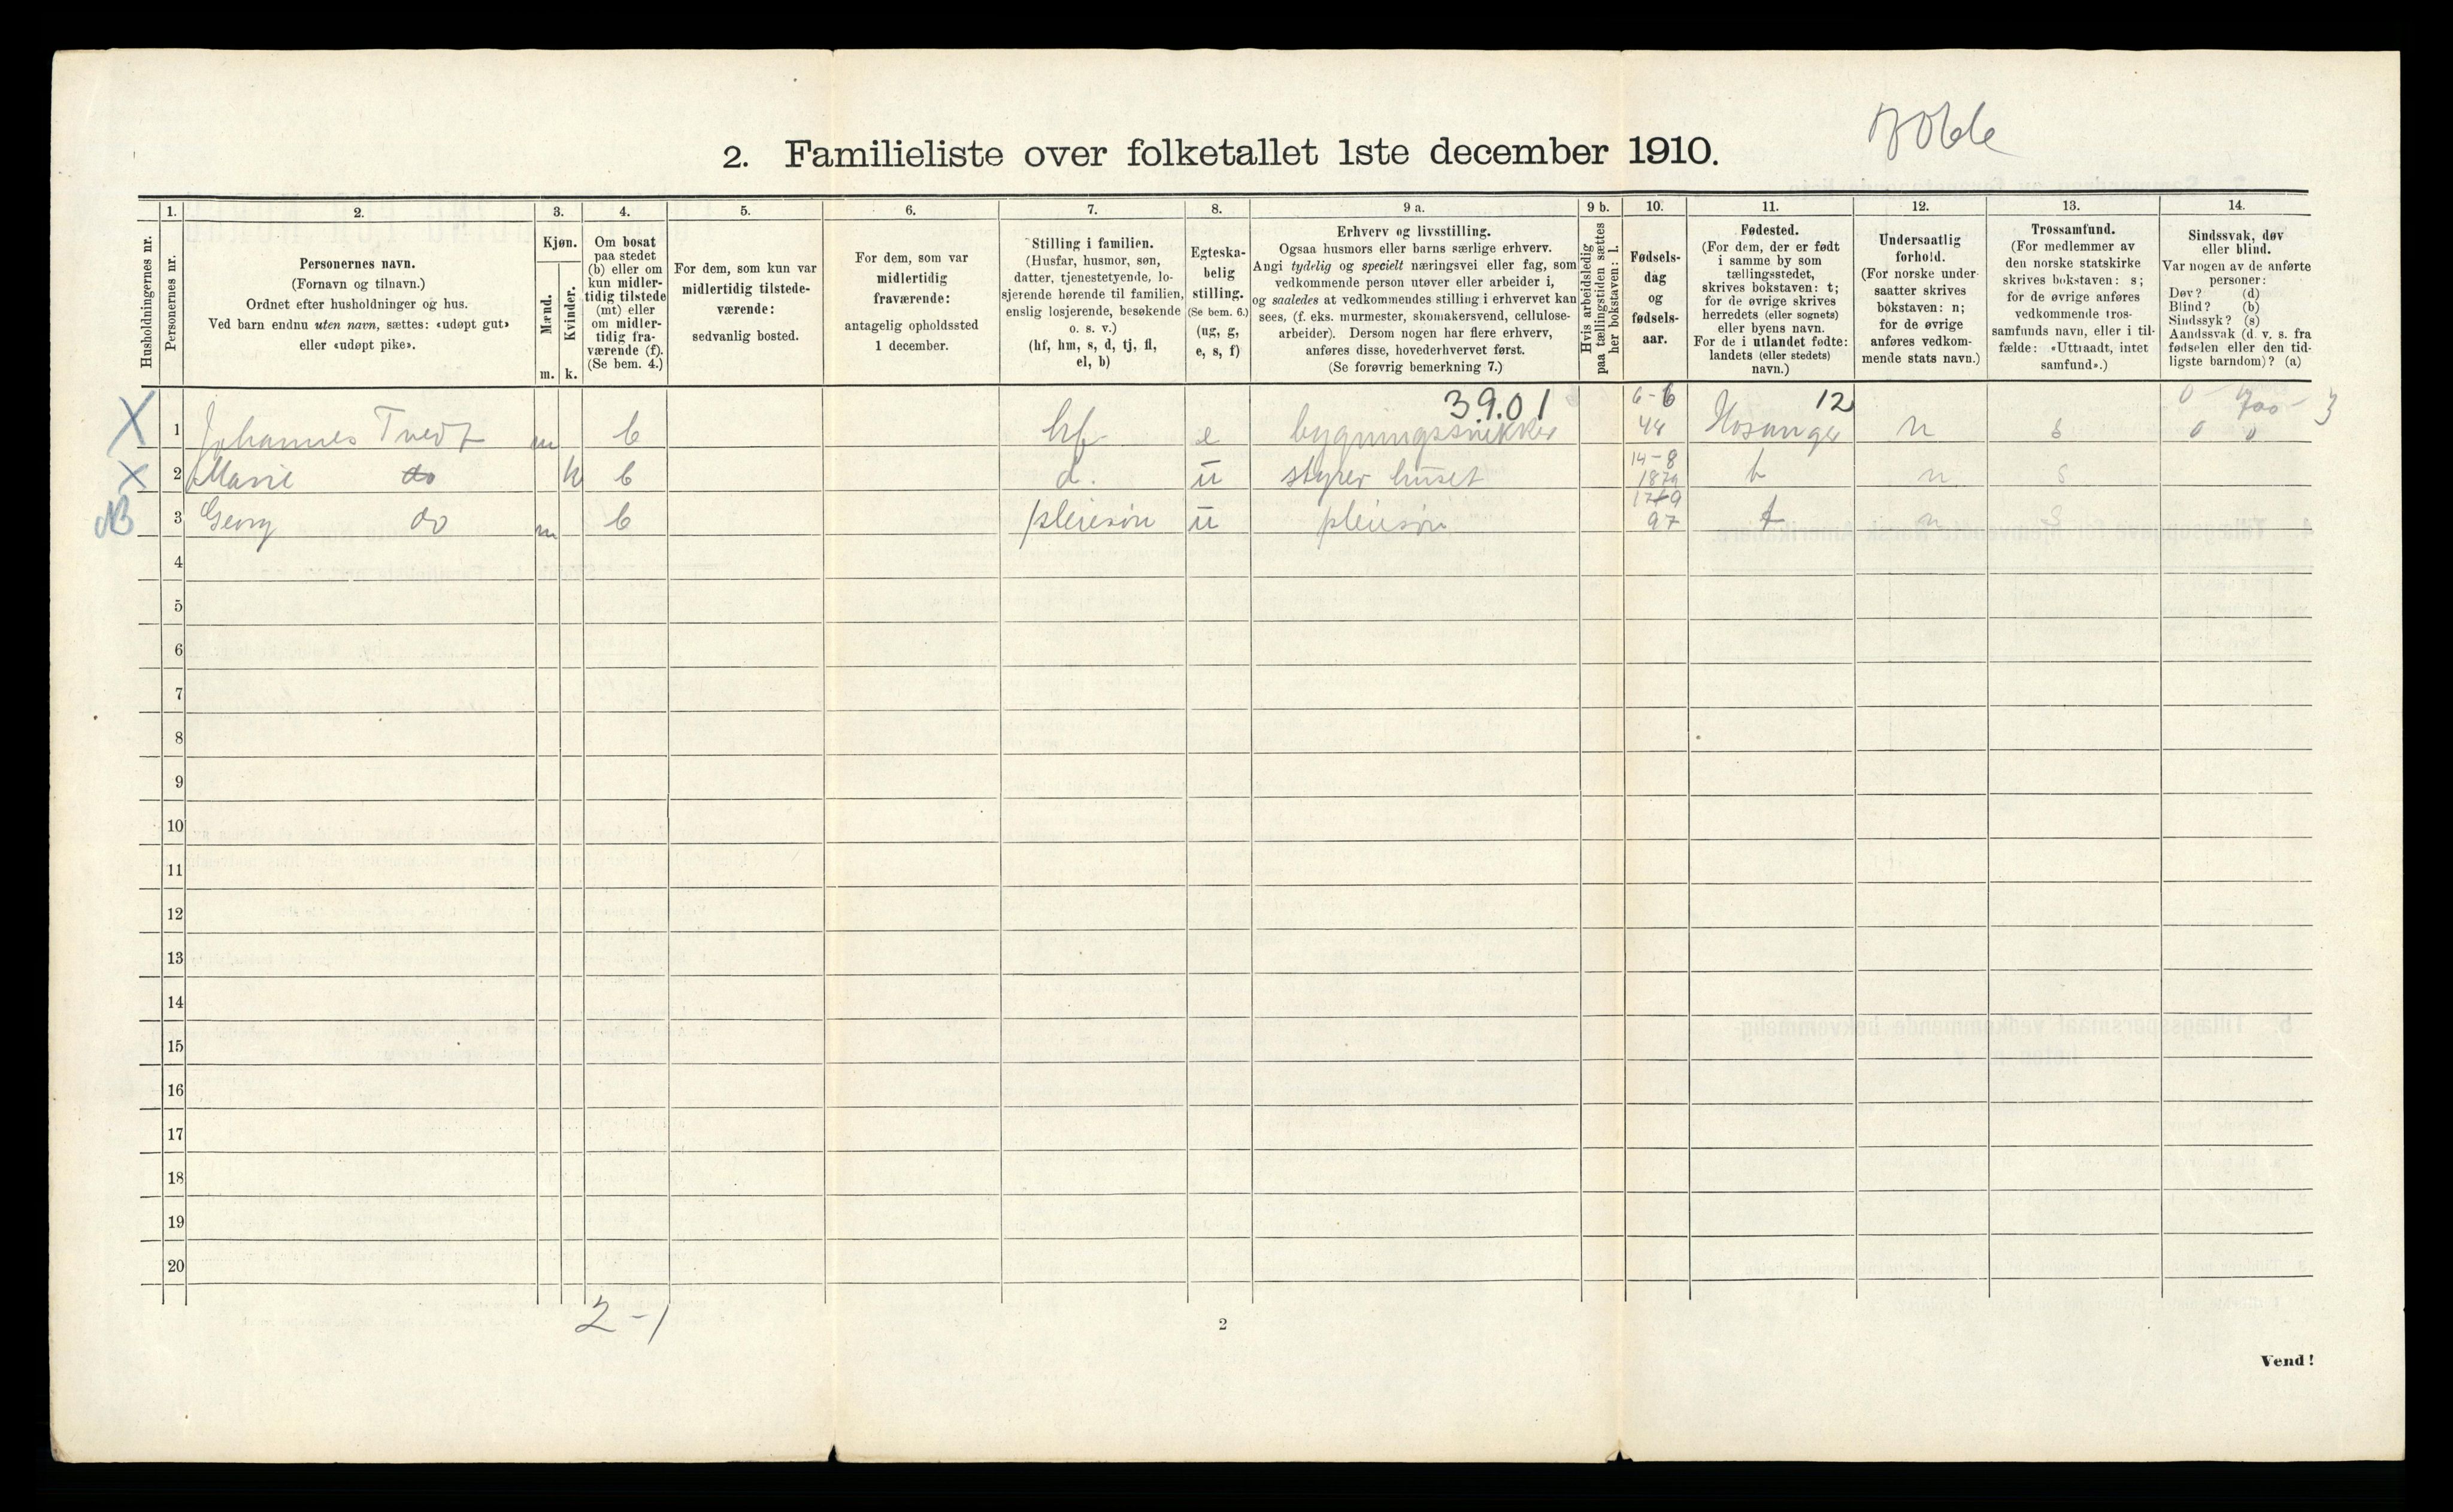 2. Familieliste over folketallet 1ste december 1910.
Husholdningernes nr.
1.
Personernes nr.
2.
Personernes navn.
(Fornavn og tilnavn.)
Ordnet efter husholdninger og hus.
Ved barn endnu uten navn, sættes: «udøpt gut»
eller «udøpt pike».
3.
Kjøn.
Mænd.
Kvinder.
m. k.
4.
Om bosat
paa stedet
(b) eller om
kun midler-
tidig tilstede
(mt) eller
om midler-
tidig fra-
værende (f).
(Se bem. 4.)
5.
For dem, som kun var
midlertidig tilstede-
værende:
sedvanlig bosted.
6.
For dem, som var
midlertidig
fraværende:
antagelig opholdssted
1 december.
7.
Stilling i familien.
(Husfar, husmor, søn,
datter, tjenestetyende, lo-
sjerende hørende til familien,
enslig losjerende, besøkende
o. s. v.)
(hf, hm, s, d, tj, fl,
el, b)
8.
Egteska-
belig
stilling.
(Se bem. 6.)
(ug, g,
e, s, f)
9 a.
Erhverv og livsstilling.
Ogsaa husmors eller barns særlige erhverv.
Angi tydelig og specielt næringsvei eller fag, som
vedkommende person utøver eller arbeider i,
og saaledes at vedkommendes stilling i erhvervet kan
sees, (f. eks. murmester, skomakersvend, cellulose-
arbeider). Dersom nogen har flere erhverv,
anføres disse, hovederhvervet først.
(Se forøvrig bemerkning 7.)
9 b.
Hvis arbeidsledig
paa tællingstiden sættes
her bokstaven: l.
10.
Fødsels-
dag
og
fødsels-
aar.
11.
Fødested.
(For dem, der er født
i samme by som
tællingsstedet,
skrives bokstaven: t;
for de øvrige skrives
herredets (eller sognets)
eller byens navn.
For de i utlandet fødte:
landets (eller stedets)
navn.)
12.
Undersaatlig
forhold.
(For norske under-
saatter skrives
bokstaven: n;
for de øvrige
anføres vedkom-
mende stats navn.)
13.
Trossamfund.
(For medlemmer av
den norske statskirke
skrives bokstaven: s;
for de øvrige anføres
vedkommende tros-
samfunds navn, eller i til-
fælde: «Uttraadt, intet
samfund».)
14.
Sindssvak, døv
eller blind.
Var nogen av de anførte
personer:
Døv? (d)
Blind? (b)
Sindssyk? (s)
Aandssvak (d. v. s. fra
fødselen eller den tid-
ligste barndom)? (a)
39.01 12
X 1 Johannes Tvedt m b hf e bygningssnekker 6-6 48 Hosanger n s
X 2 Marie do k b d. u styrer huset 14-8 1879 t n s
NB 3 Georg do m b pleiesøn u pleiesøn 17-9 97 t n s
4
5
6
7
8
9
10
11
12
13
14
15
16
17
18
19
20
2-1
2
Vend!